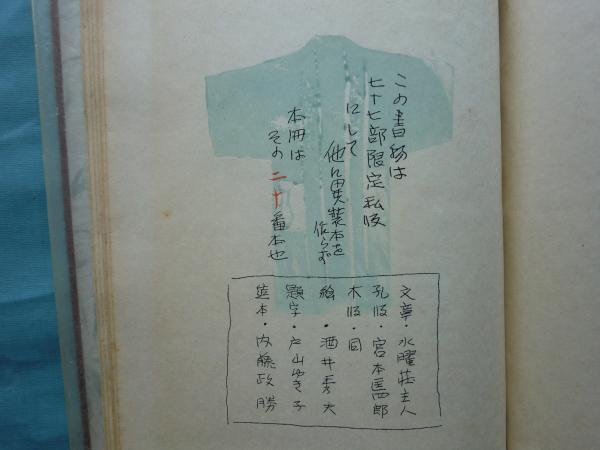 この書物は
七十七部限定私版
にして
他に異装本を
作らず
本冊は
その二十番本也
文章・水曜荘主人
孔版・宮本匡四郎
木版・同
絵・酒井秀夫
題字・戸山ゆき子
造本・内藤政勝